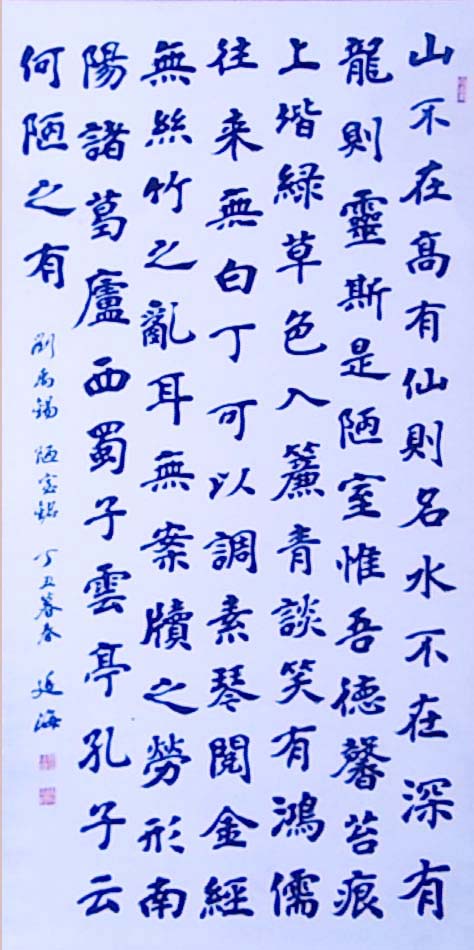 山不在高有仙則名水不在深有
龍則靈斯是陋室惟吾德馨苔痕
上堦緑草色入簾青談笑有鴻儒
往来無白丁可以調素琴閱金經
無絲竹之亂耳無案牘之勞形南
陽諸葛廬西蜀子雲亭孔子云
何陋之有
劉禹錫 陋室銘 丁丑暮春 延海